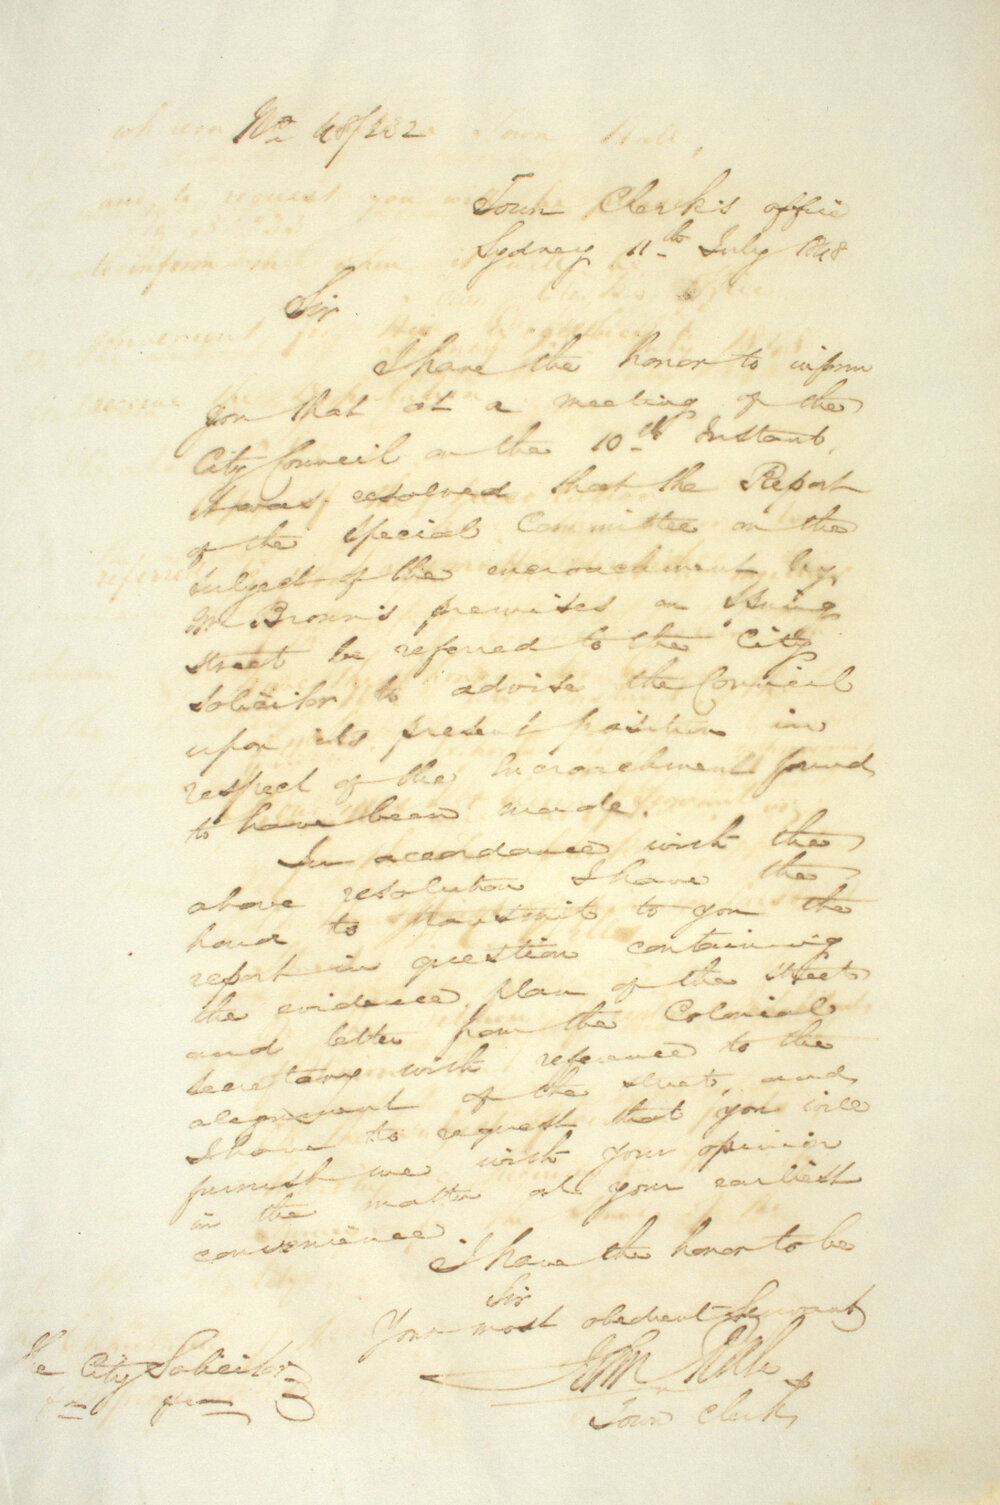 No 48/232
Town Clerk's office
Sydney 11th July 1848
Sir
I have the honor to inform
you that at a meeting of the
City Council on the 10th Instant,
it was resolved that the Report
of the Special Committee on the
subject of the encroachment by
Mr Brown's premises on Spring
Street be referred to the City
Solicitor to advise the Council
upon its present position in
respect of the Encroachment found
to have been made.
In accordance with the
above resolution I have the
honor to transmit to you the
report in question containing
the evidence, plan of the street
and letter from the Colonial
Secretary with reference to the
alignment of the street, and
I have to request that you will
furnish me with your opinion
in the matter at your earliest
convenience
I have the honor to be
Sir
Your most obedient Servant
John
Town Clerk
The City Solicitor